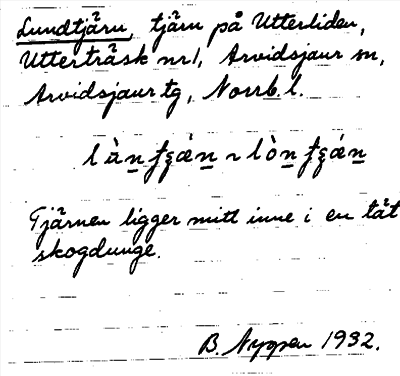 Lundtjärn, tjärn på Utterliden,
Utterträsk nr 1, Arvidsjaur sn,
Arvidsjaur tg, Norrb. l.
Tjärnen ligger mitt inne i en tät
skogdunge.
B. Nyggen 1932.